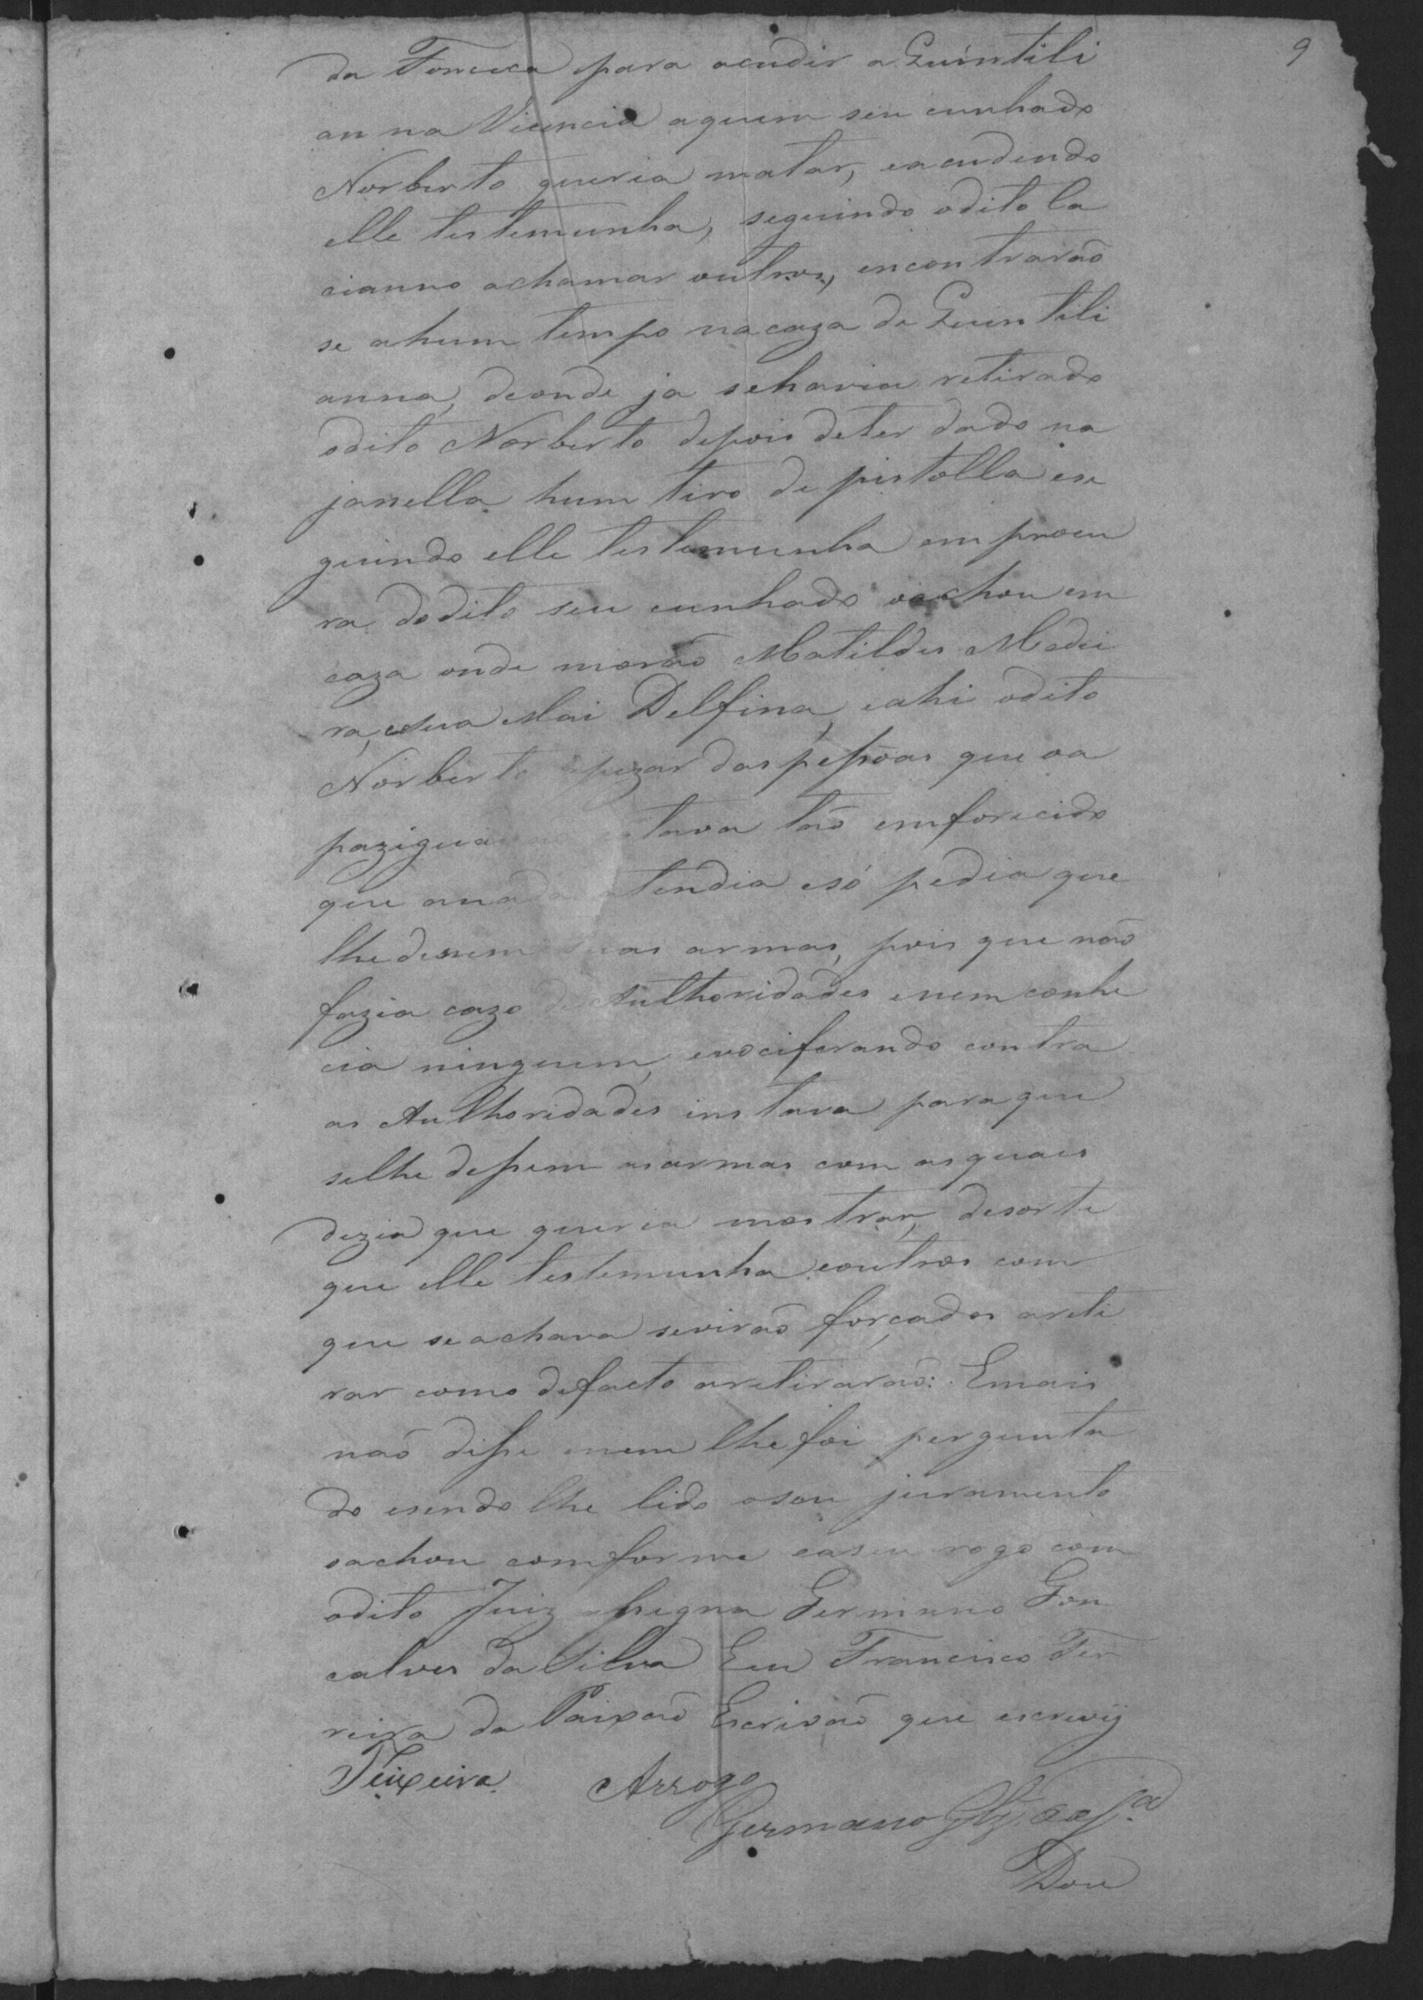 9
da Fonceca para acudir a Quintili
anna Vicencia aquem seu cunhado
Norberto queria matar, eacudindo
elle testemunha, seguindo odito la
cianno achamar outros, encontrarão
se ahum tempo nacaza de Quintili
anna, deonde ja sehavia retirado
odito Norberto depois deter dado na
janella hum tiro de pistolla ese
guindo elle testemunha em procu
ra dodito seu cunhado oachou em
caza onde morão Matildes Madei
ra, esua Mai Delfina, eahi odito
Norberto apezar das peßoas que oa
paziguavão estava tão emforecido
que anada atendia esó pedia que
lhedessem suas armas, pois que não
fazia cazo de Authoridades enem conhe
cia ninguem, evociferando contra
as Authoridades instava paraque
selhe deßem asarmas com asquais
dezia que queria mostrar, desorte
que elle testemunha eoutros com
que seachava sevirão forçados areti
rar como defacto aretirarão: Emais
não diße enem lhefoi pergunta
do esendo lhe lido oseu juramento
oachou comforme easeu rogo com
odito Juiz aßigna Germano Gon
calves da Silva Eu Francisco Fer
reira da Paixão Escrivão que escrevÿ
Teixeira Arrogo
Germano Glz da Sª
Dou